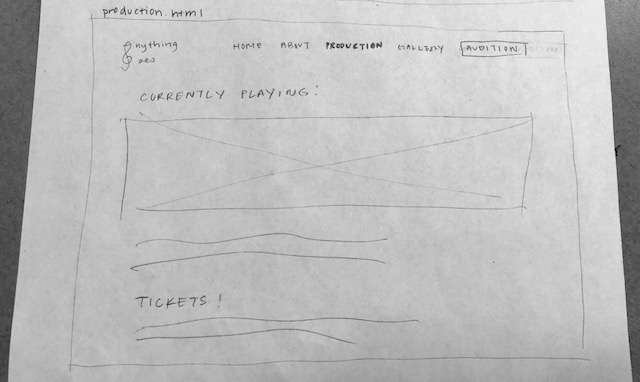 production.html
nything
oes
HOME ABOUT PRODUCTION GALLERY AUDITION
CURRENTLY PLAYING:
TICKETS!